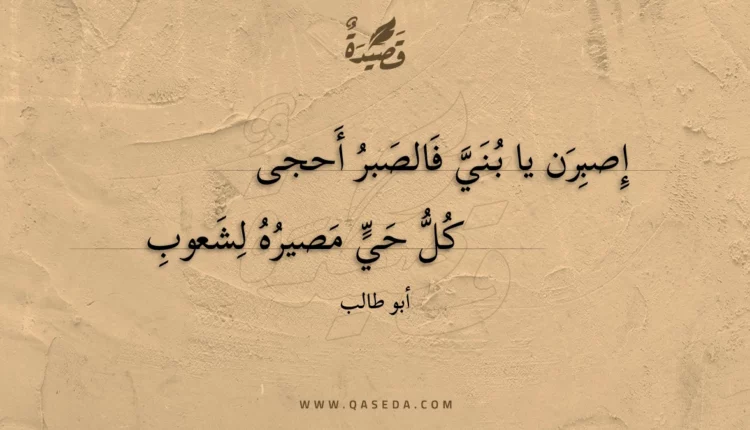 قَصِيْدَةٌ
إِصبِرَن يا بُنَيَّ فَالصَبرُ أَحجى
كُلُّ حَيٍّ مَصيرُهُ لِشَعوبِ
أبو طالب
WWW.QASEDA.COM